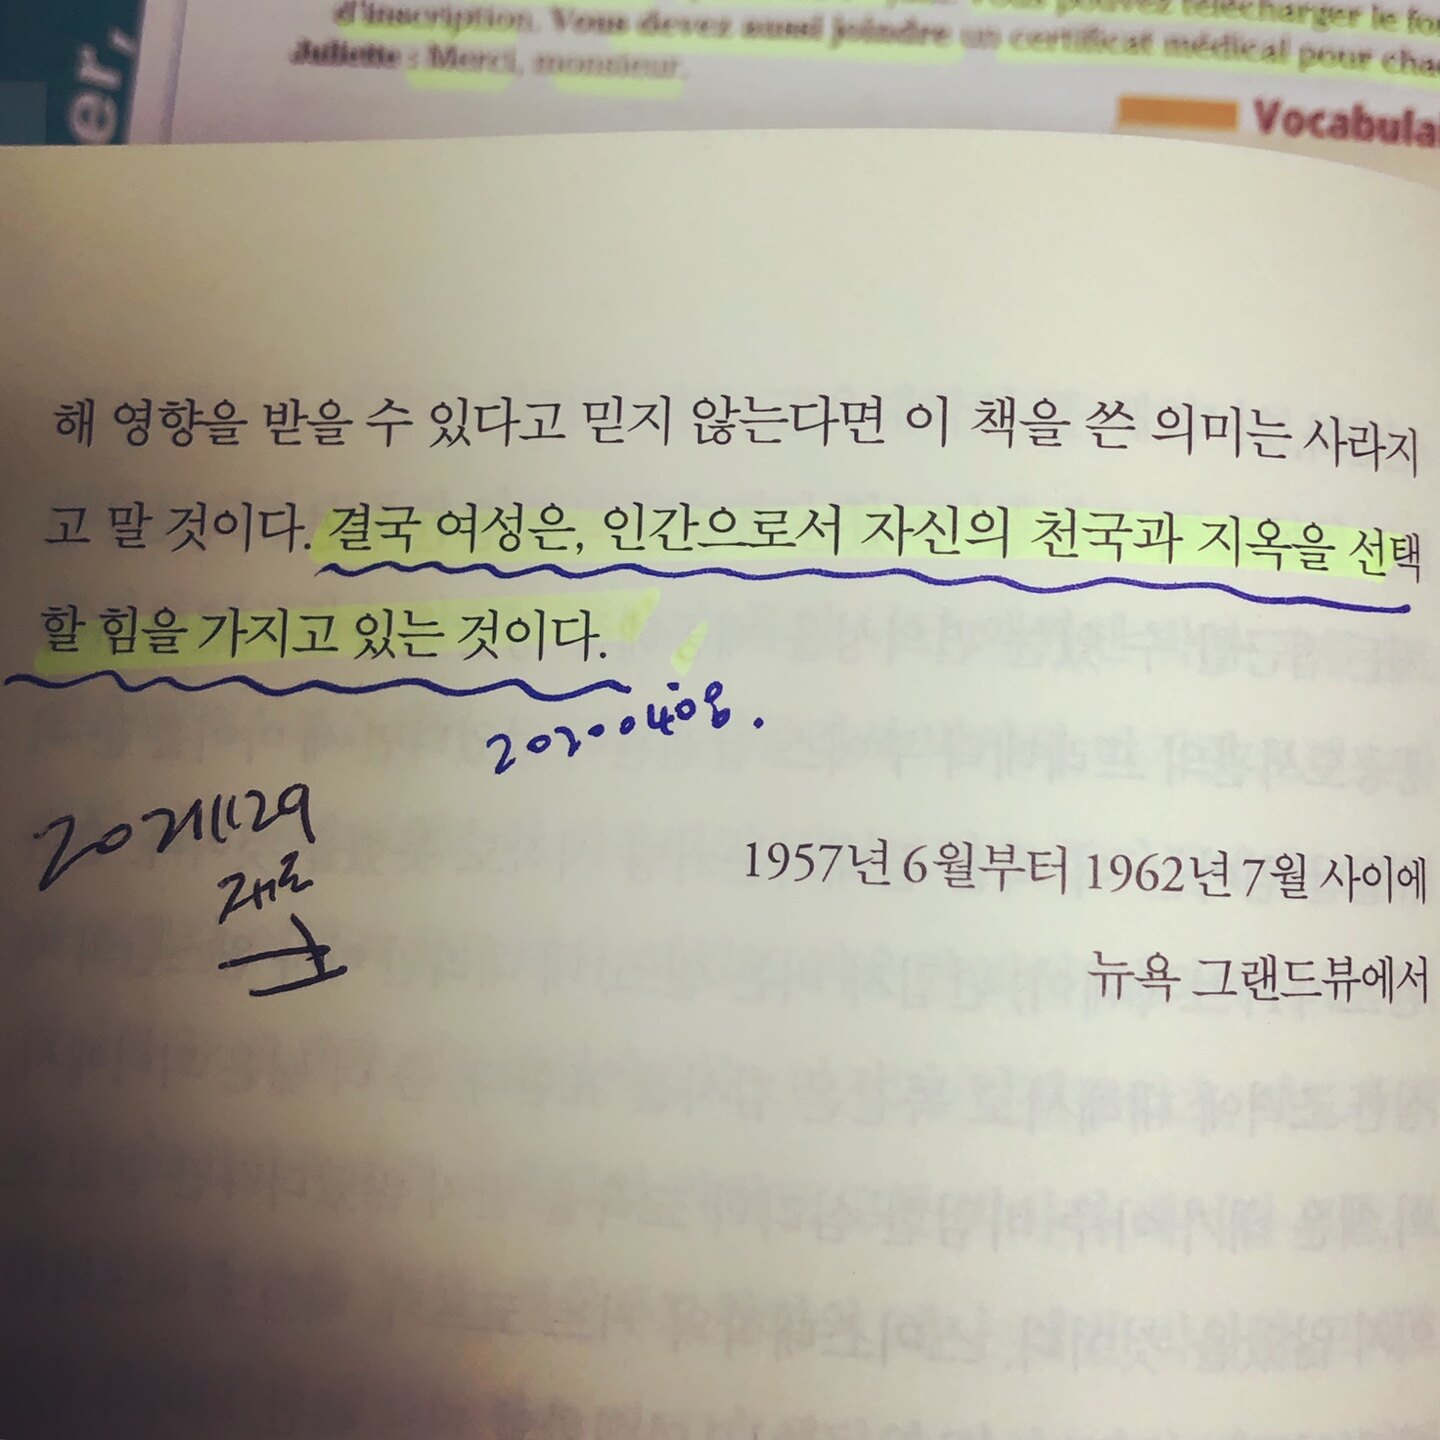 er,
télécharger le
d'inscription. Vous devez aussi joindre un certificat médical pour
Juliette : Merci, monsieur.
해 영향을 받을 수 있다고 믿지 않는다면 이 책을 쓴 의미는 사라지
고 말 것이다. 결국 여성은, 인간으로서 자신의 천국과 지옥을 선택
할 힘을 가지고 있는 것이다.
20211129
1957년 6월부터 1962년 7월 사이에
뉴욕 그랜드뷰에서